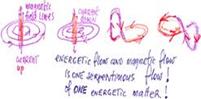 magnetic
field lines
current
down
current
up
energetic flow and magnetic flow
is one serpentinous flow!
of one energetic matter!